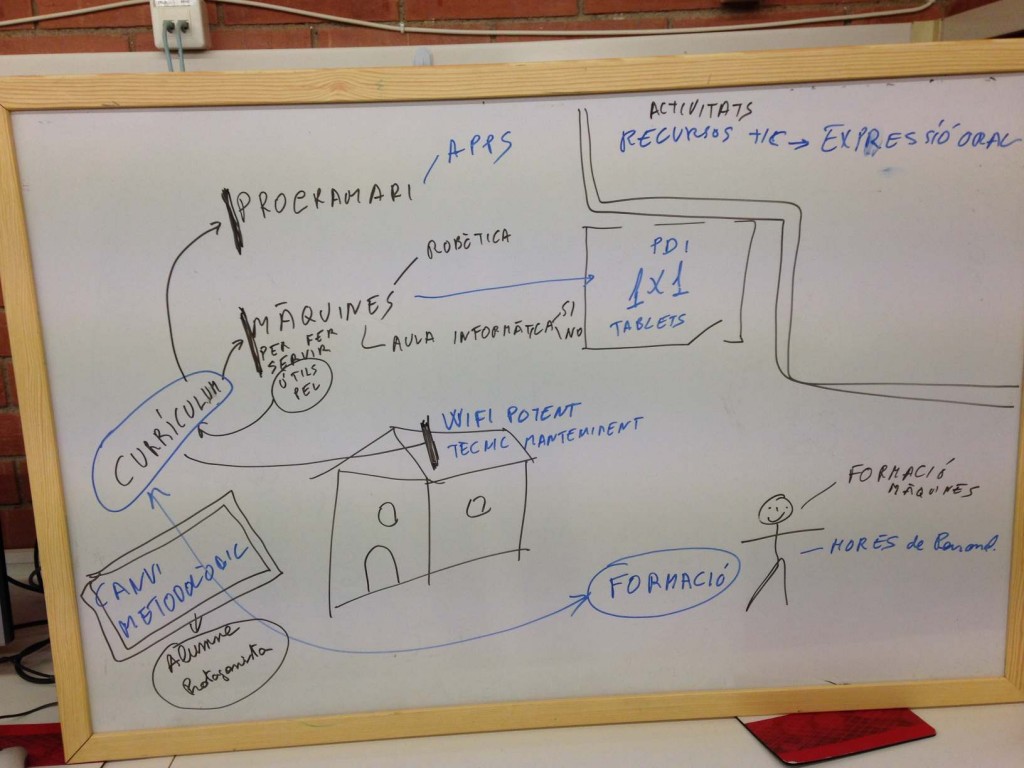 ACTIVITATS
RECURSOS TIC → EXPRESSIÓ ORAL
APPS
PROGRAMARI
ROBÒTICA
MÀQUINES
PER FER
SERVIR
ÚTILS
PEL
AULA INFORMÀTICA
SI
NO
PDI
1X1
TABLETS
CURRÍCULUM
WIFI POTENT
TECNIC MANTENIMENT
CANVI
METODOLÒGIC
Alumne
Protagonista
FORMACIÓ
FORMACIÓ
MÀQUINES
HORES de